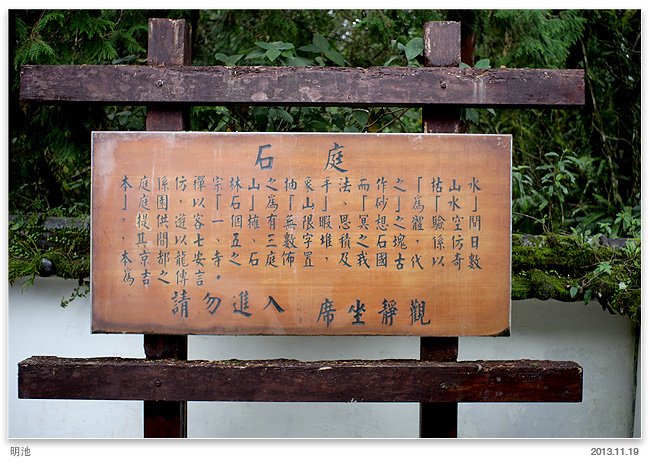 石庭
本庭係仿禪宗林山之抽象手法而作之「枯山水
」庭園,以「石」為「山」、「砂」為「水」
。提供遊客一個擁有無限暇思冥想之空間
,其間以七、五、三數字堆積之石塊,係仿日
本京都龍安寺之石庭佈置,及我國古代以奇數
為吉之傳言。
請勿進入 席坐靜觀
明池
2013.11.19